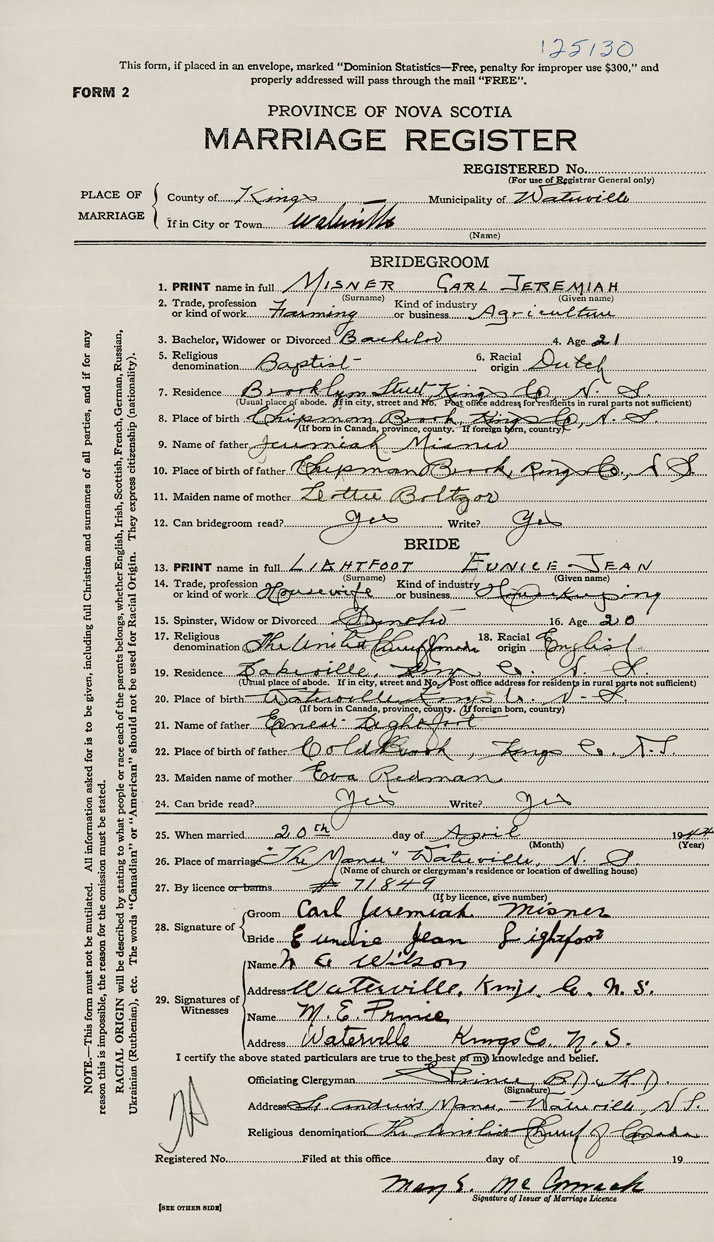 125130
This form, if placed in an envelope, marked "Dominion Statistics—Free, penalty for improper use $300," and
properly addressed will pass through the mail "FREE".
FORM 2
PROVINCE OF NOVA SCOTIA
MARRIAGE REGISTER
REGISTERED No.
(For use of Registrar General only)
PLACE OF MARRIAGE
County of Kings Municipality of Waterville
If in City or Town Waterville
(Name)
BRIDEGROOM
1. PRINT name in full MISNER CARL JEREMIAH
(Surname) (Given name)
2. Trade, profession or kind of work Farming Kind of industry or business Agriculture
3. Bachelor, Widower or Divorced Bachelor 4. Age 21
5. Religious denomination Baptist 6. Racial origin Dutch
7. Residence Brooklyn Street, Kings Co, N. S.
(Usual place of abode. If in city, street and No. Post office address for residents in rural parts not sufficient)
8. Place of birth Chipman Brook, Kings Co, N. S.
(If born in Canada, province, county. If foreign born, country)
9. Name of father Jeremiah Misner
10. Place of birth of father Chipman Brook, Kings Co., N S
11. Maiden name of mother Lottie Boltzor
12. Can bridegroom read? Yes Write? Yes
BRIDE
13. PRINT name in full LIGHTFOOT EUNICE JEAN
(Surname) (Given name)
14. Trade, profession or kind of work Housewife Kind of industry or business Housekeeping
15. Spinster, Widow or Divorced Spinster 16. Age 20
17. Religious denomination The United Church of Canada 18. Racial origin English
19. Residence Lakeville, Kings Co. N. S.
(Usual place of abode. If in city, street and No. Post office address for residents in rural parts not sufficient)
20. Place of birth Waterville Kings Co. N. S.
(If born in Canada, province, county. If foreign born, country)
21. Name of father Ernest Lightfoot
22. Place of birth of father Coldbrook, Kings Co. N.S.
23. Maiden name of mother Eva Redman
24. Can bride read? Yes Write? Yes
25. When married 20th day of April 1944
(Month) (Year)
26. Place of marriage "The Manse" Waterville, N. S.
(Name of church or clergyman's residence or location of dwelling house)
27. By licence or banns # 71849
(If by licence, give number)
28. Signature of
Groom Carl Jeremiah Misner
Bride Eunice Jean Lightfoot
29. Signatures of Witnesses
Name Wilson
Address Waterville, Kings Co. N. S.
Name M. E. Prince
Address Waterville Kings Co. N. S.
I certify the above stated particulars are true to the best of my knowledge and belief.
Officiating Clergyman Prince B.D. Th.D.
(Signature)
Address St. Andrew's Manse, Waterville, N.S.
Religious denomination The United Church of Canada
Registered No. Filed at this office day of 19
Mary E. McCormack
Signature of Issuer of Marriage Licence
[SEE OTHER SIDE]
NOTE.—This form must not be mutilated. All information asked for is to be given, including full Christian and surnames of all parties, and if for any
reason this is impossible, the reason for the omission must be stated.
RACIAL ORIGIN will be described by stating to what people or race each of the parents belongs, whether English, Irish, Scottish, French, German, Russian,
Ukrainian (Ruthenian), etc. The words "Canadian" or "American" should not be used for Racial Origin. They express citizenship (nationality).